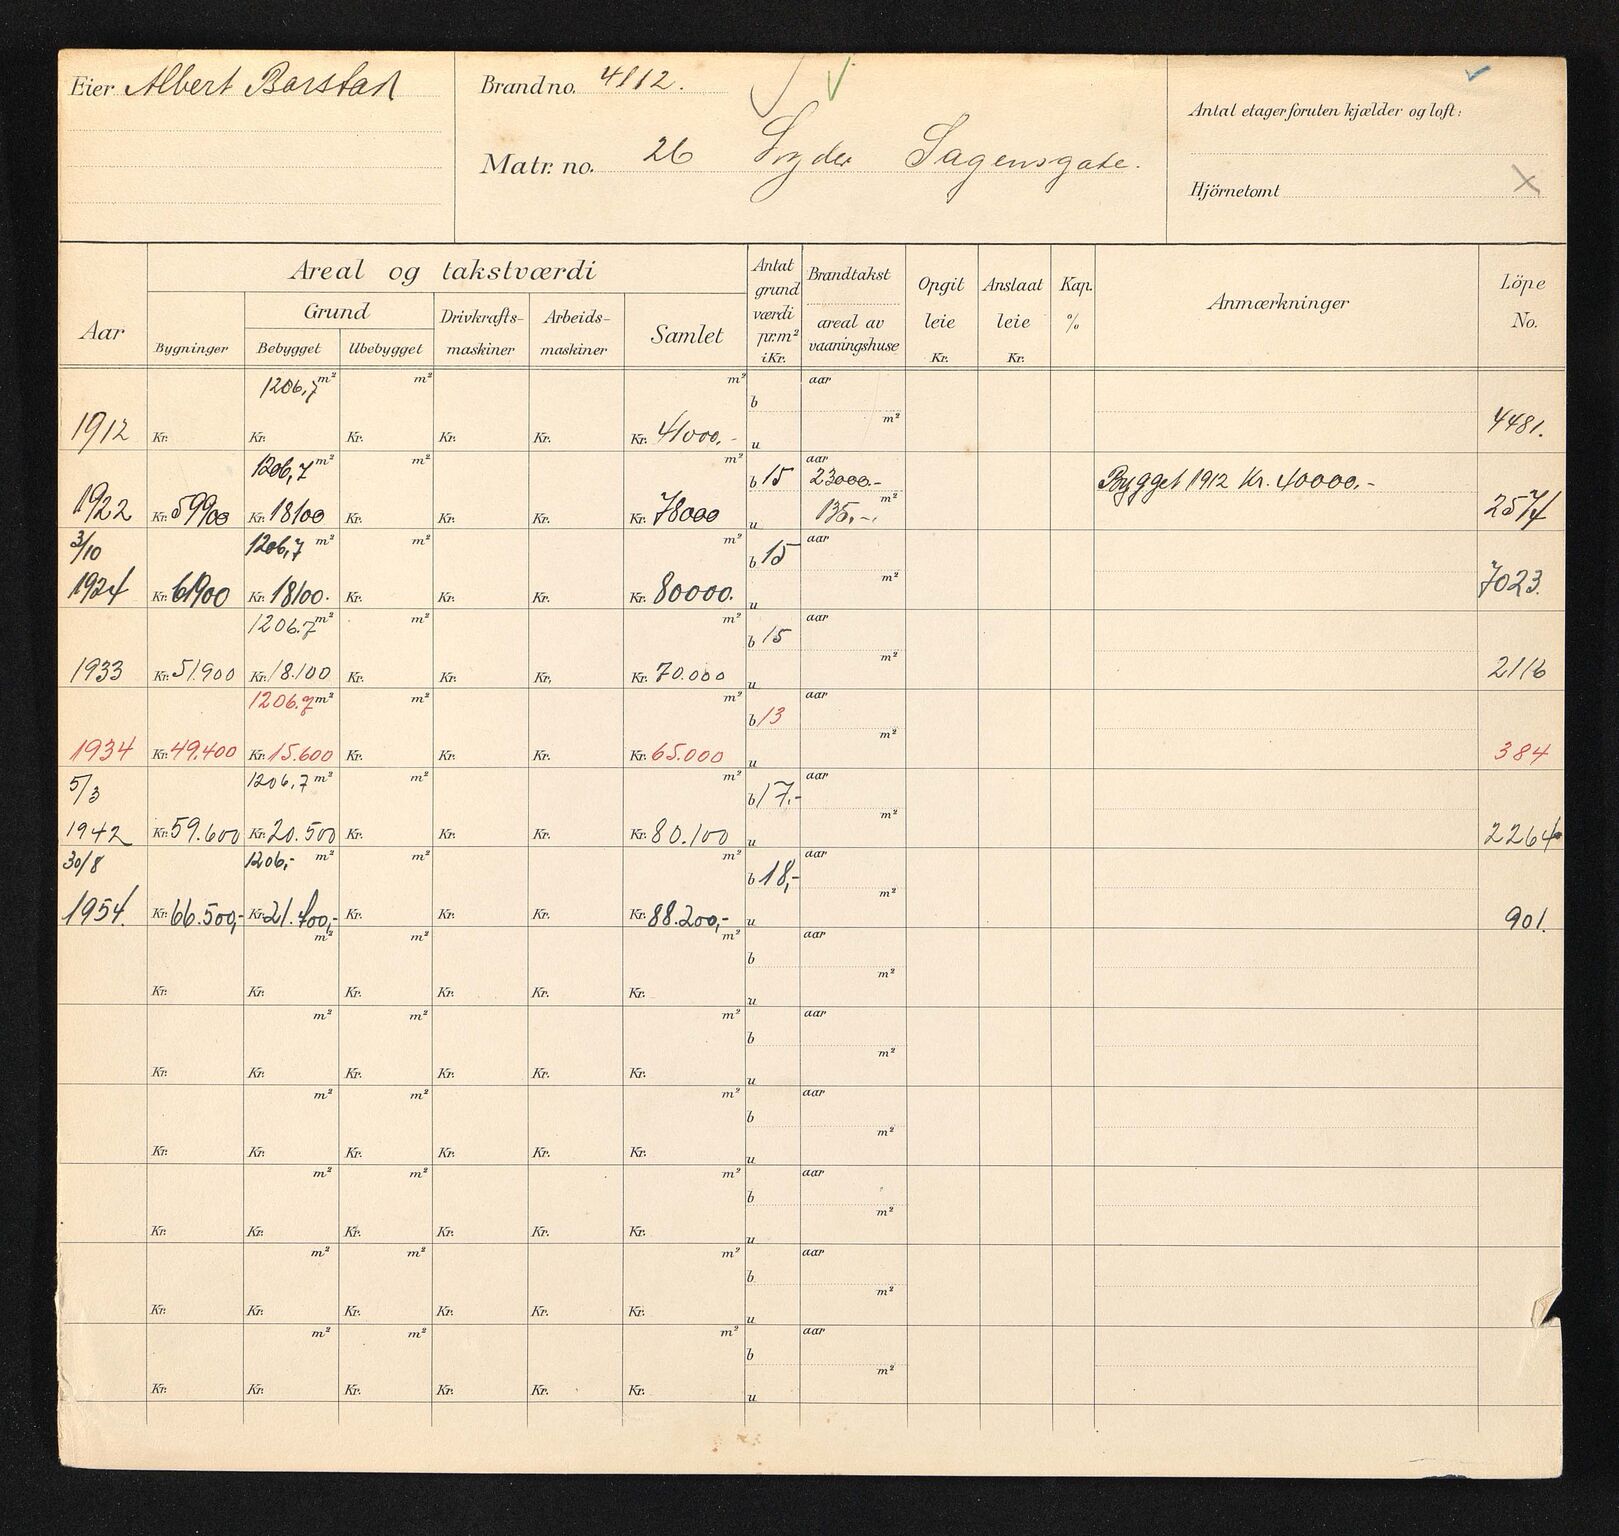 Eier Albert Barstad
Brand no. 4112.
Matr. no. 26 Lyder Sagensgate.
Antal etager foruten kjælder og loft:
Hjörnetomt X
Aar
Areal og takstværdi
Grund
Bygninger Bebygget Ubebygget
Drivkrafts-maskiner
Arbeids-maskiner
Samlet
Antat grund værdi pr. m² i Kr.
Brandtakst areal av vaaningshuse
Opgit leie Kr.
Anslaat leie Kr.
Kap. %
Anmærkninger
Löpe No.
1206,7 m² m² m² b aar m²
1912 Kr. Kr. Kr. Kr. Kr. Kr. 41000.- u 4481.
1206,7 m² m² m² b 15 aar 23000.- Bygget 1912 Kr. 40000.-
1922 Kr. 59900 Kr. 18100 Kr. Kr. Kr. Kr. 78000 u 135.- m² 2574
3/10 1206,7 m² m² m² b 15 aar m²
1924 Kr. 61900 Kr. 18100. Kr. Kr. Kr. Kr. 80000. u 7023.
1206.7 m² m² m² b 15 aar m²
1933 Kr. 51.900 Kr. 18.100 Kr. Kr. Kr. Kr. 70.000 u 2116
1206.7 m² m² m² b 13 aar m²
1934 Kr. 49.400 Kr. 15.600 Kr. Kr. Kr. Kr. 65.000 u 384
5/3 1206,7 m² m² m² b 17.- aar m²
1942 Kr. 59.600 Kr. 20.500 Kr. Kr. Kr. Kr. 80.100 u 2264
30/8 1206,- m² m² m² b 18,- aar m²
1954. Kr. 66.500,- Kr. 21.700,- Kr. Kr. Kr. Kr. 88.200,- u 901.
m² m² m² b aar m²
Kr. Kr. Kr. Kr. Kr. Kr. u
m² m² m² b aar m²
Kr. Kr. Kr. Kr. Kr. Kr. u
m² m² m² b aar m²
Kr. Kr. Kr. Kr. Kr. Kr. u
m² m² m² b aar m²
Kr. Kr. Kr. Kr. Kr. Kr. u
m² m² m² b aar m²
Kr. Kr. Kr. Kr. Kr. Kr. u
m² m² m² b aar m²
Kr. Kr. Kr. Kr. Kr. Kr. u